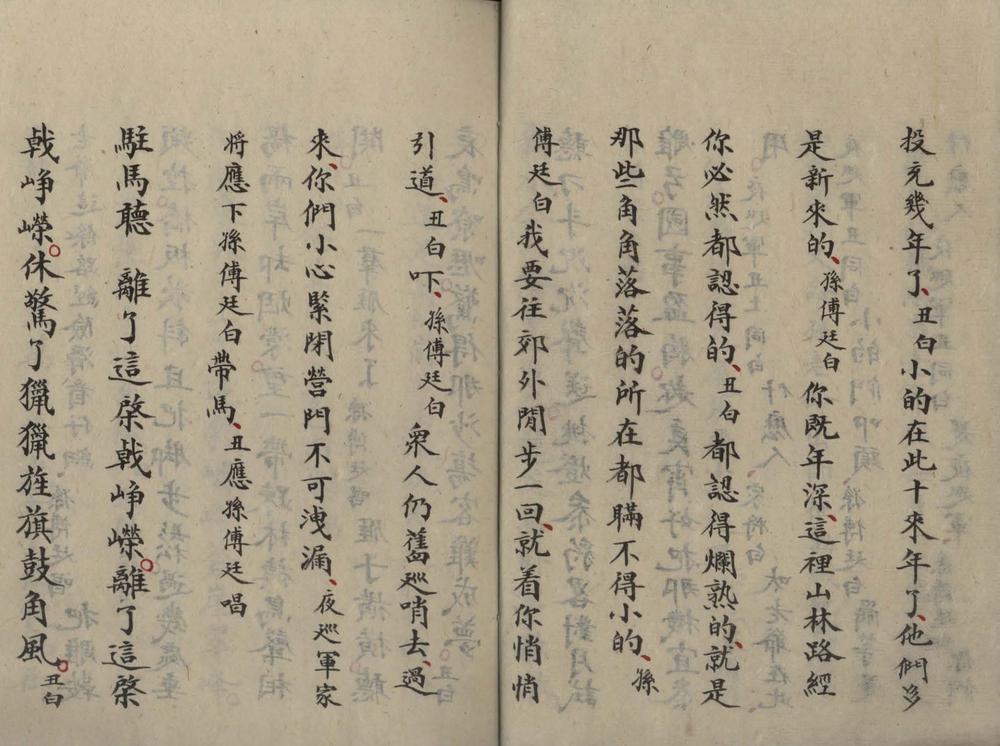 投充幾年了、丑白小的在此十来年了、他們多
是新来的、孫傅廷白你既年深、這裡山林路經
你必然都認得的、丑白都認得爛熟的、就是
那些角角落落的所在都瞞不得小的、孫
傅廷白我要往郊外閒步一回、就着你悄悄
引道、丑白吓、孫傅廷白衆人仍舊巡哨去、過
来、你們小心緊閉營門不可洩漏、夜巡軍家
将應下孫傅廷白帶馬、丑應孫傅廷唱
駐馬聽 離了這棨戟崢嶸。離了這棨
戟崢嶸。休驚了獵獵旌旗鼓角風。丑白